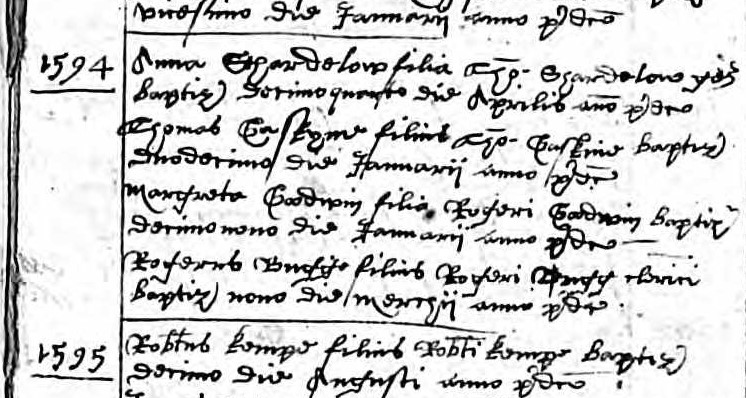 vicesimo die Januarii anno p'dco
1594 Anna Shardelow filia Tho: Shardelow
baptiz) decimoquarto die Aprilis ano p'dco
Thomas Gaskyne filius Tho: Gaskine baptiz)
duodecimo die Januarii anno p'dco
Margreta Goodwin filia Rogeri Goodwin baptiz)
decimonono die Januarii anno p'dco
Rogerus Bugge filius Rogeri Bugg clerici
baptiz) nono die Merchii anno p'dco
1595 Robtus Kempe filius Robti Kempe baptiz)
decimo die Augusti anno p'dco